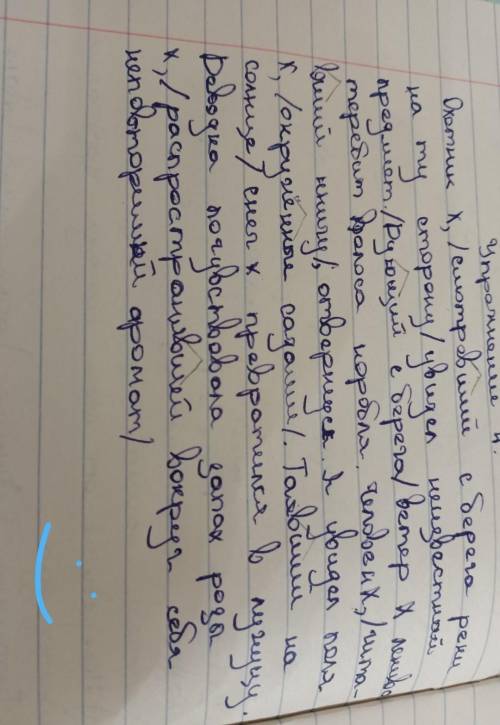 Упражнение 4.
Охотник X, /смотревший с берега реки
на ту сторону/ увидел неизвестный
предмет. /Дующий с берега/ ветер X лениво
теребит волоса корабля. Человек X, /чита-
вший книгу/, отвернулся. Я увидел поля
X, /окружённые садами/. Таявший на
солнце/ снег X превратился в лужицу.
Девочка почувствовала запах розы
X, /распространившей вокруг себя
неповторимый аромат/